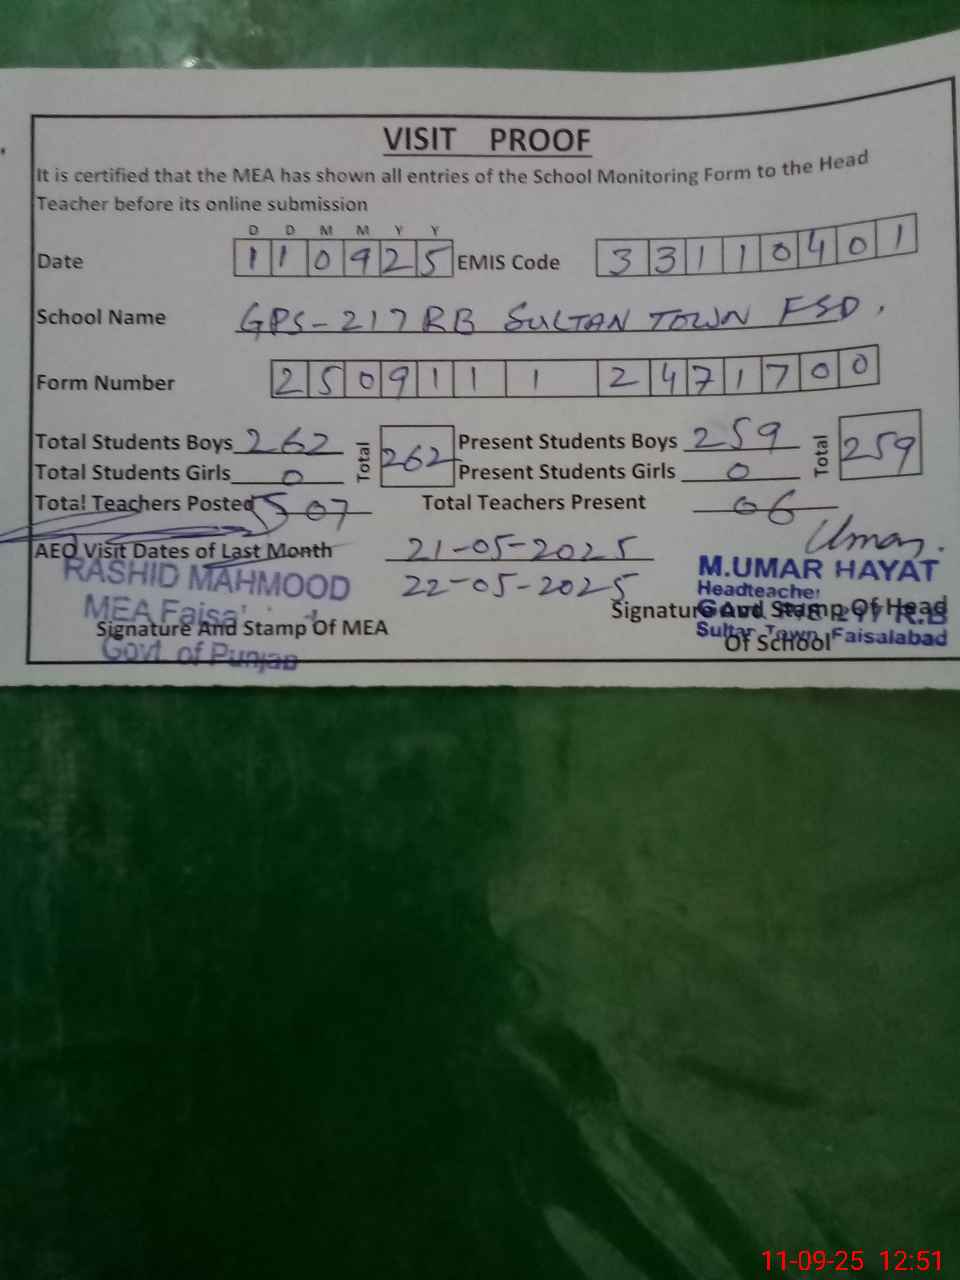 VISIT PROOF
It is certified that the MEA has shown all entries of the School Monitoring Form to the Head
Teacher before its online submission
D D M M Y Y
Date 1 1 0 9 2 5 EMIS Code 3 3 1 1 0 4 0 1
School Name GPS-217 RB SULTAN TOWN FSD.
Form Number 2 5 0 9 1 1 1 2 4 7 1 7 0 0
Total Students Boys 262 Total 262 Present Students Boys 259 Total 259
Total Students Girls 0 Present Students Girls 0
Total Teachers Posted 07 Total Teachers Present 06
Umar.
AEO Visit Dates of Last Month 21-05-2025
22-05-2025
RASHID MAHMOOD
MEA
Govt of Punjab
Signature And Stamp Of MEA
M.UMAR HAYAT
Headteacher
Govt. 217 R.B
Sultan Town Faisalabad
Signature And Stamp Of Head
Of School
11-09-25 12:51